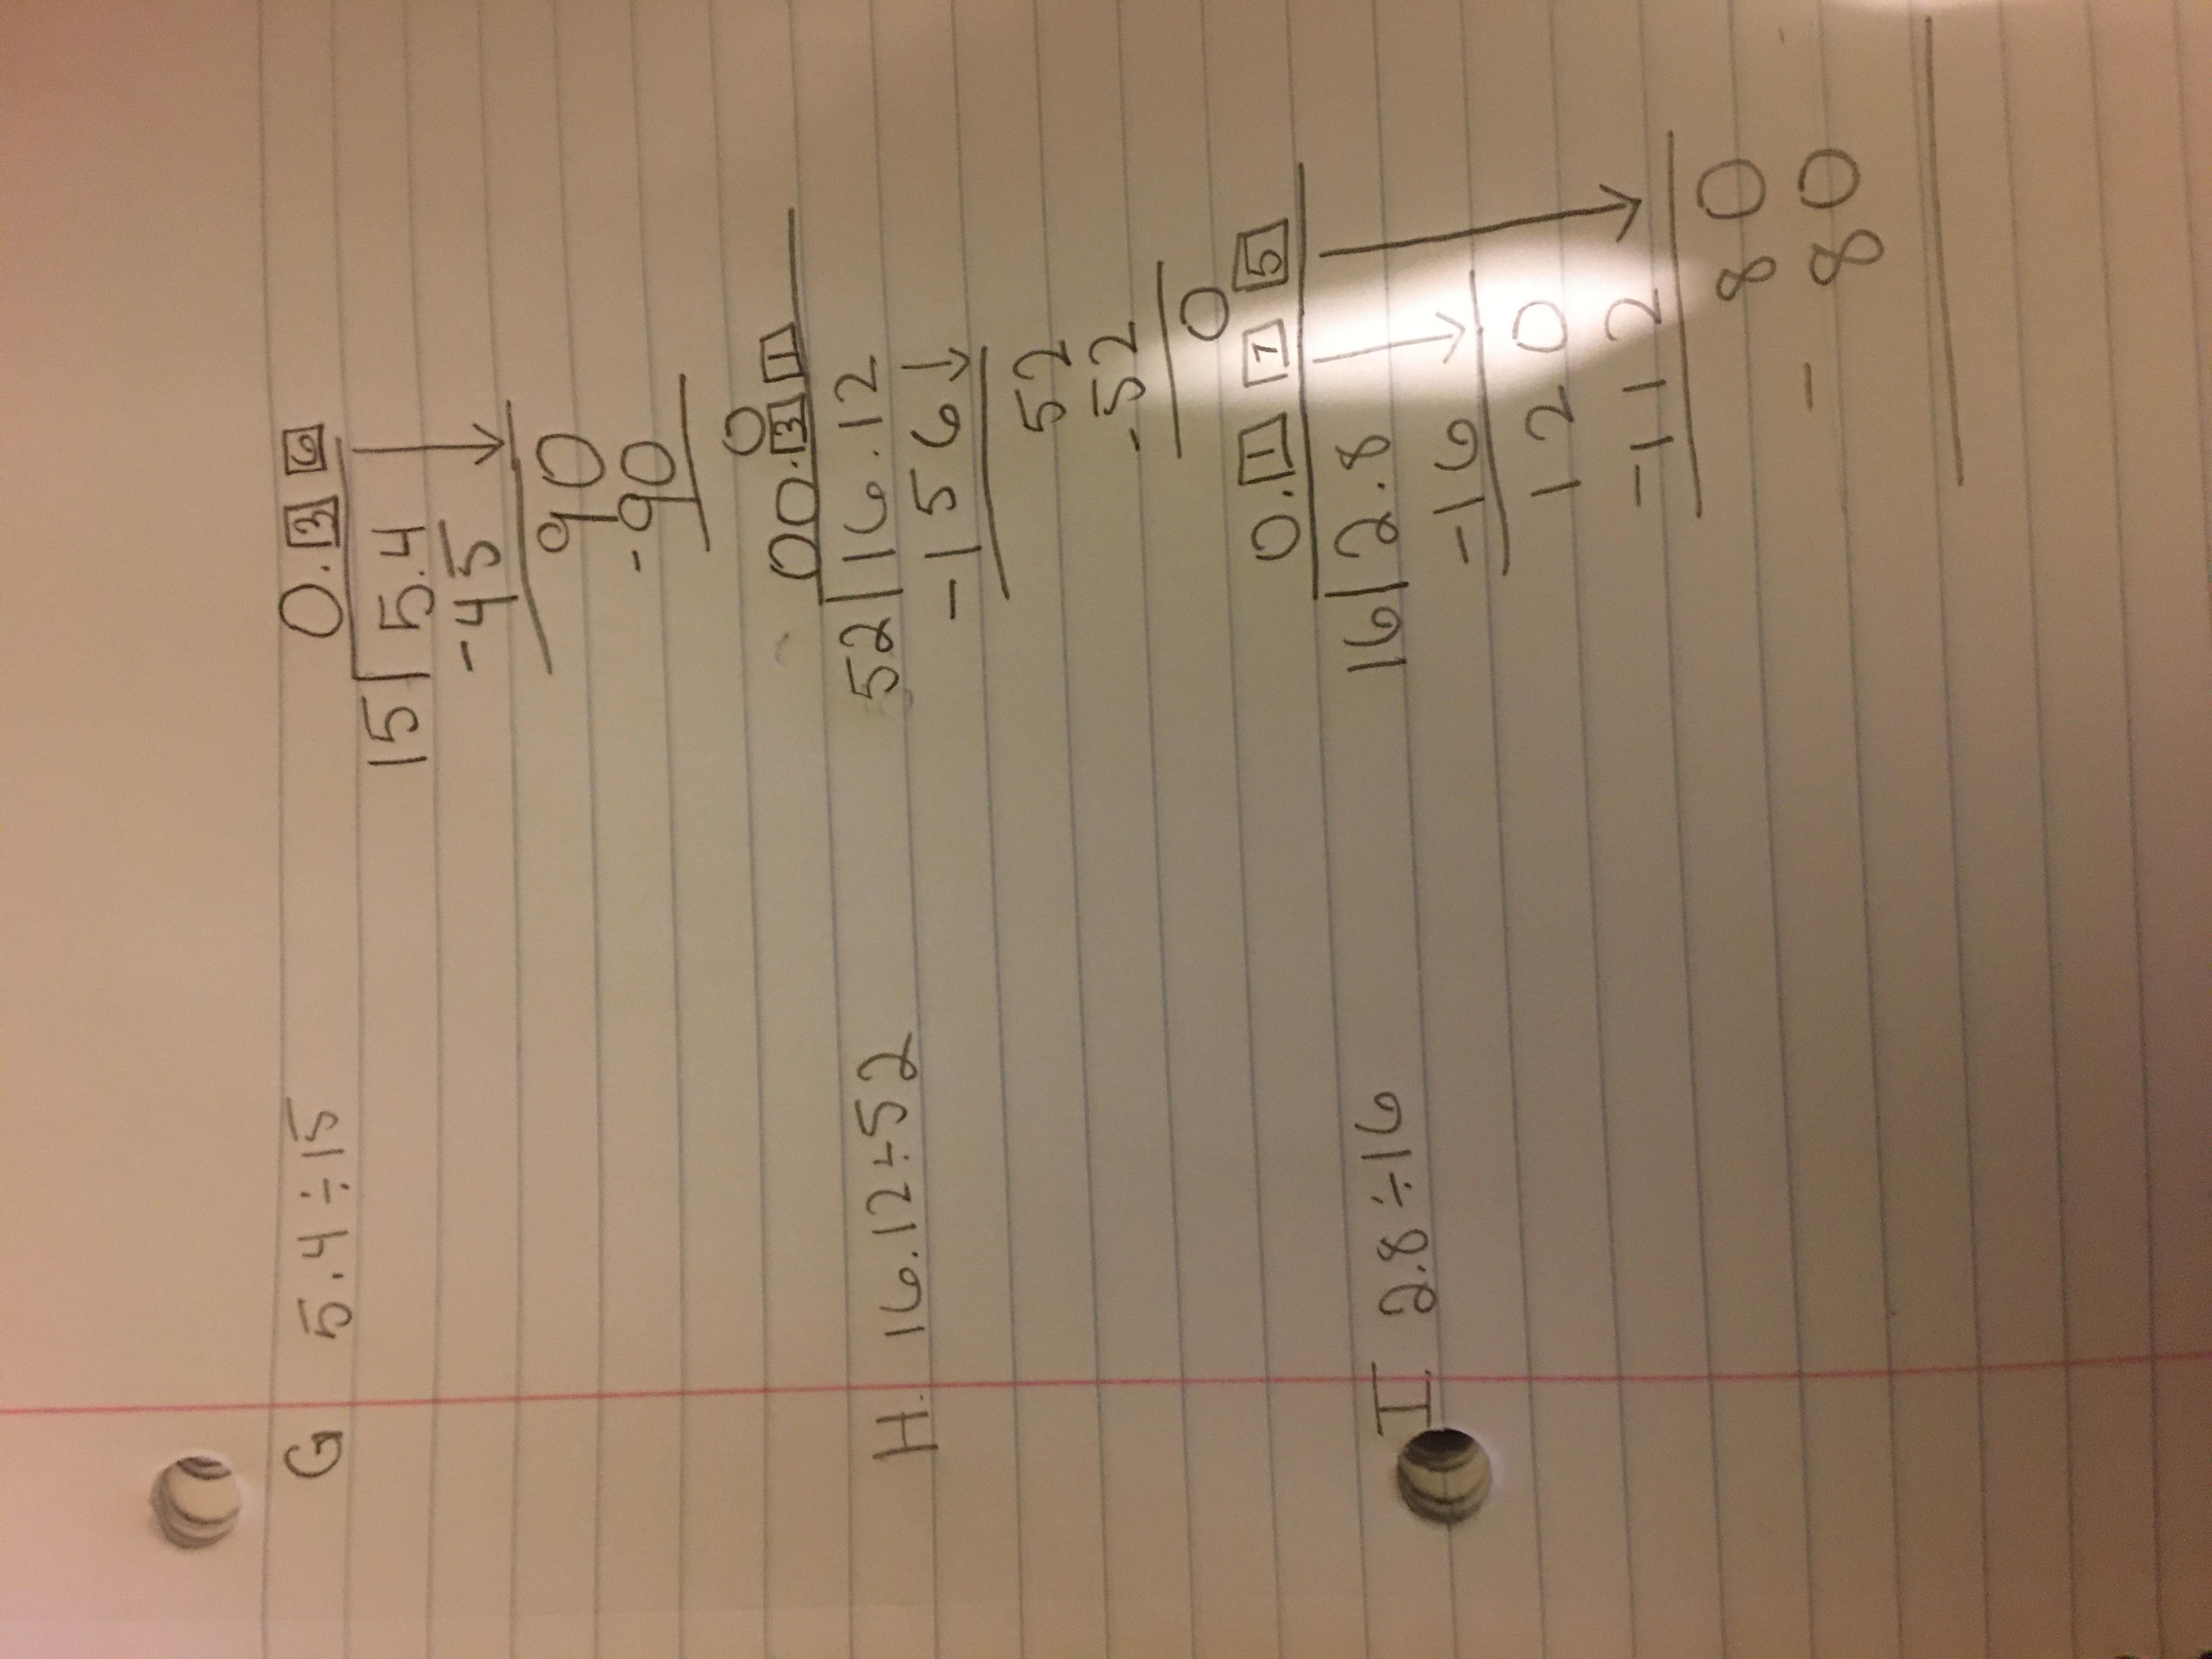 G 5.4 ÷ 15
0.36
15 5.4
-45
90
-90
0
H. 16.12 ÷ 52
00.31
52 16.12
-156
52
-52
0
I. 2.8 ÷ 16
0.175
16 2.8
-16
120
-112
80
- 80